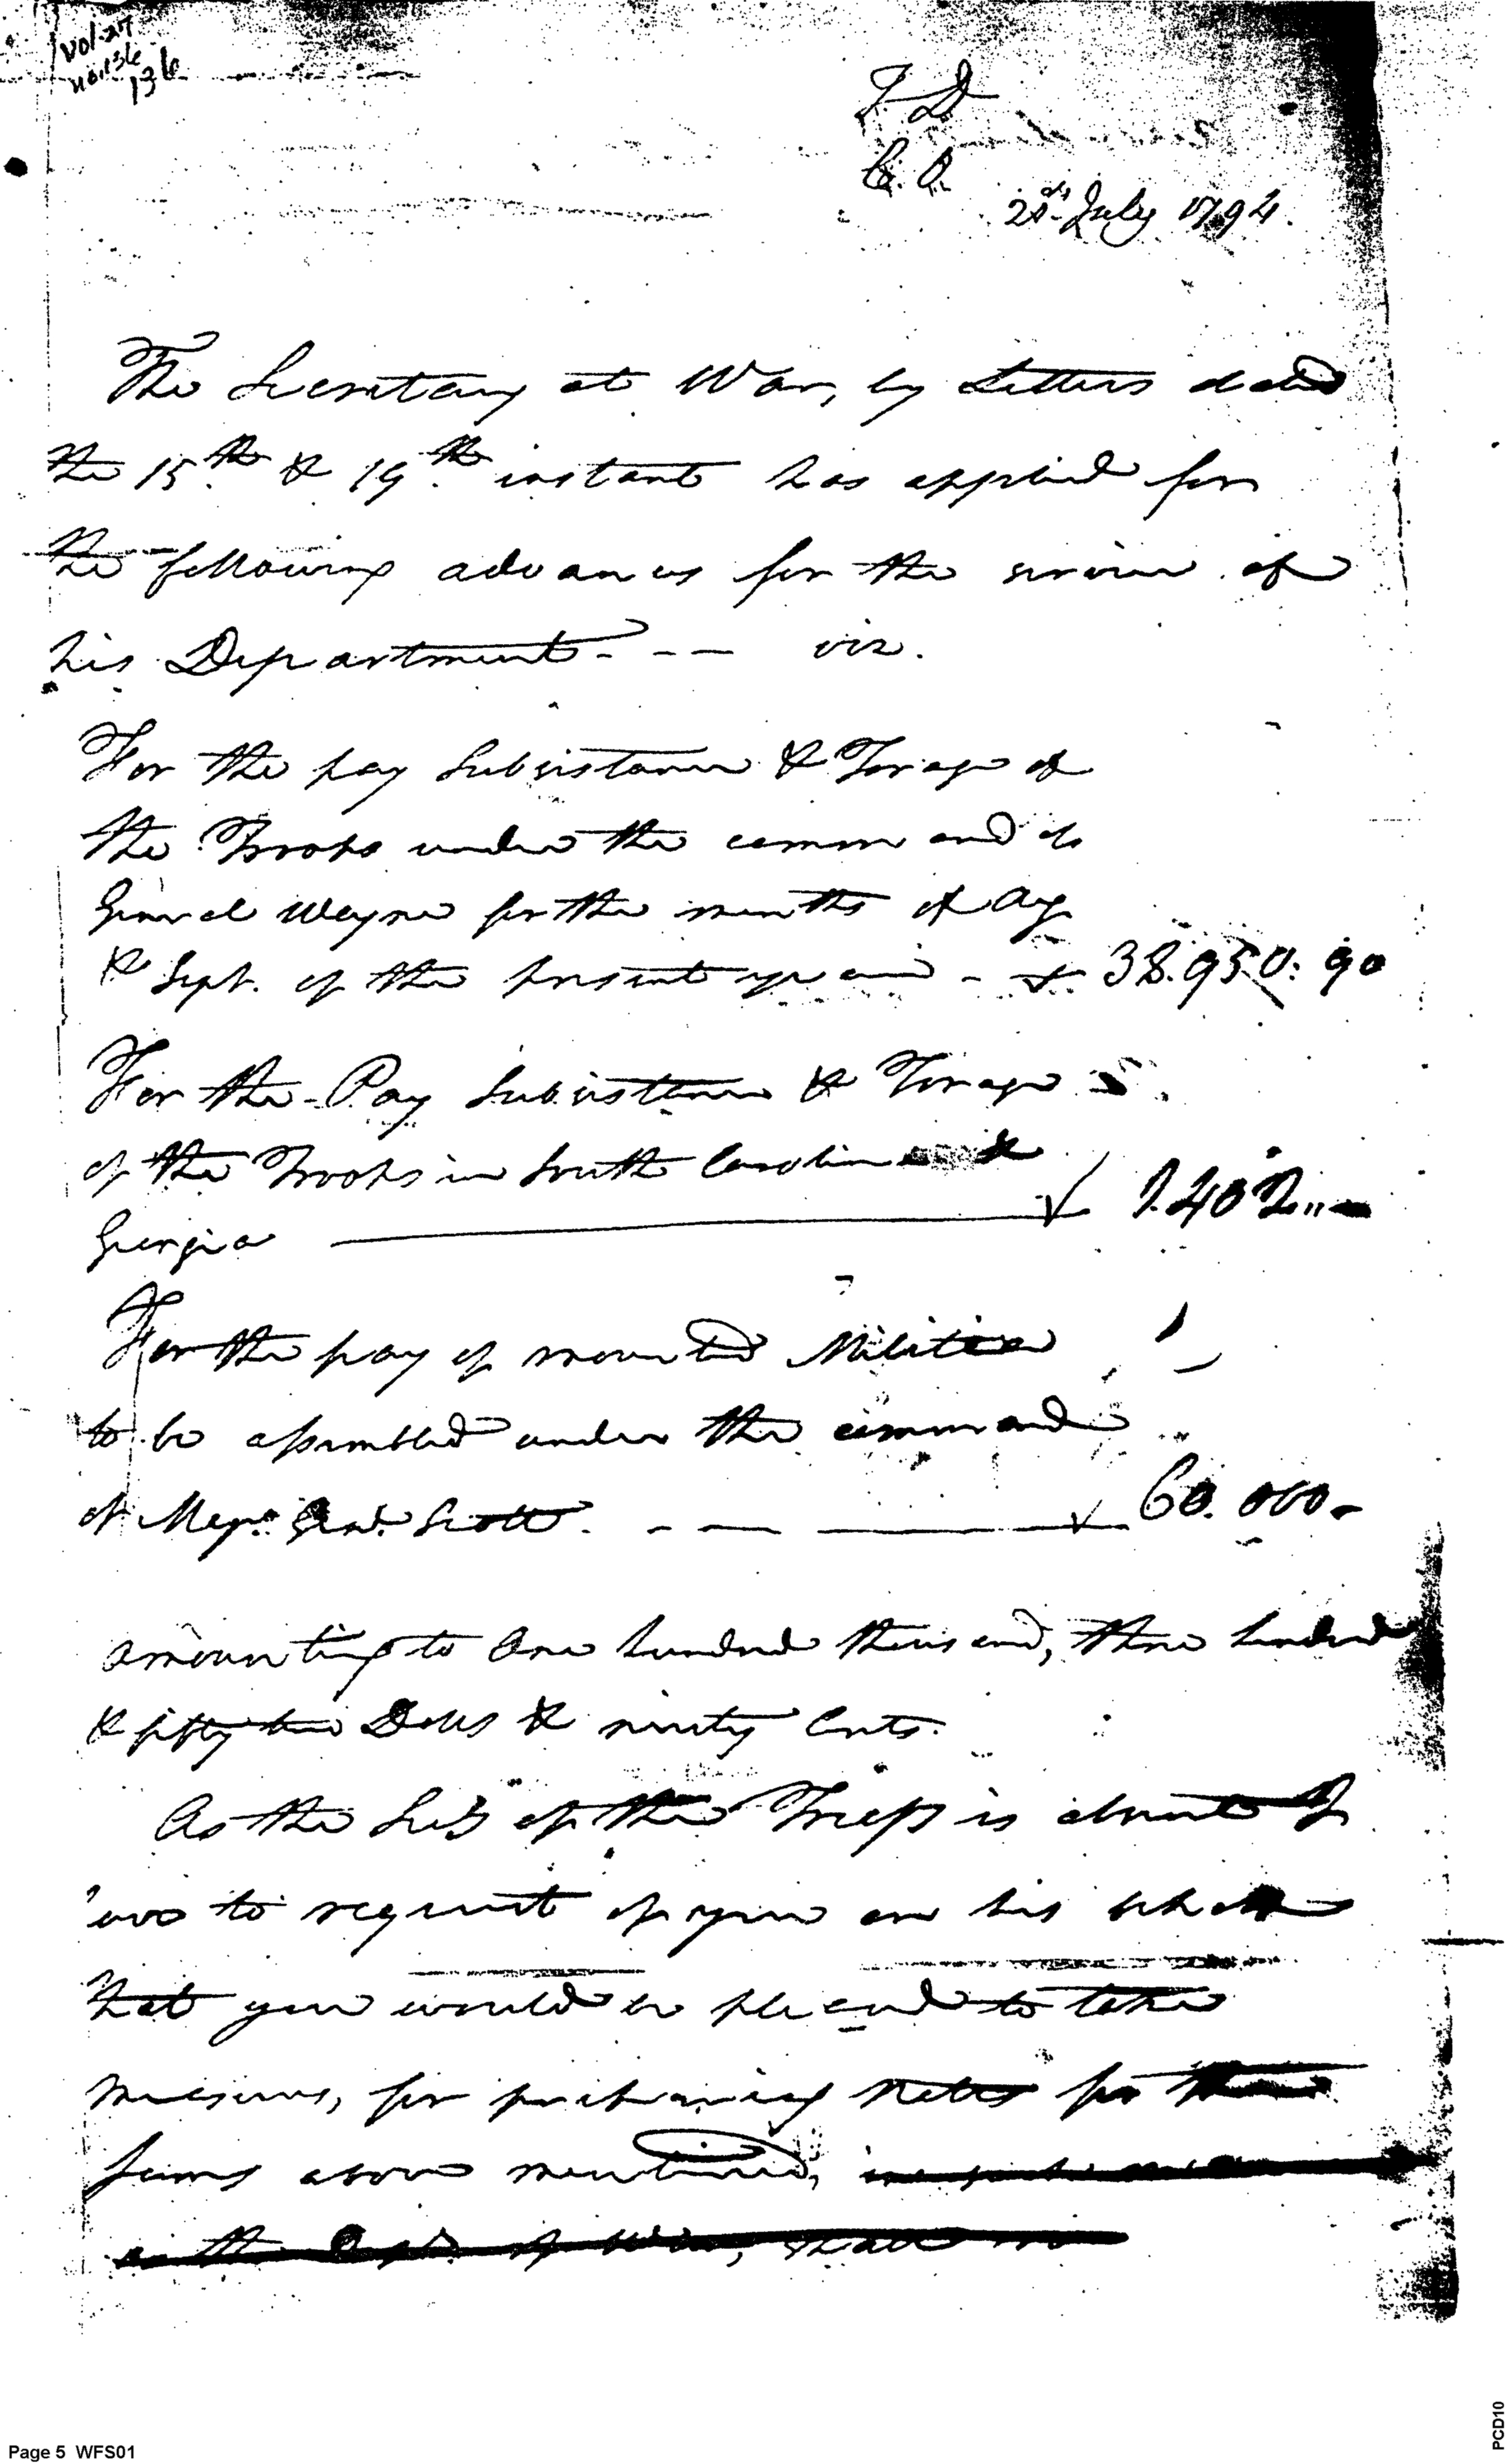 Vol. 27
no. 136
136
T. D
C. O.
21st July 1794.
The Secretary at War, by Letters dated
the 15th & 19th instant has applied for
the following advances for the service of
his Department - - - viz.
For the pay Subsistance & Forage of
the Troops under the command of
General Wayne for the months of Aug
& Sept. of the present year - 38.950: 90
For the Pay Subsistance & Forage
of the Troops in South Carolina &
Georgia 1.402
For the pay of mounted Militia
to be assembled under the command
of Majr. Genl. Scott. - - 60.000-
amounting to One hundred thousand, three hundred
& fifty two Dolls & ninety Cents.
As the Secy of the Treasy is absent I
have to request of you on his behalf
that you would be pleased to take
measures, for procuring Notes for the
sums above mentioned,
Page 5 WFS01
PCD10